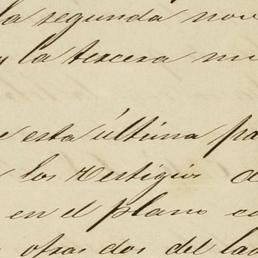 la segunda nov
y la tercera m
esta última pa
los vestigios d
en el plano co
otras dos del lad